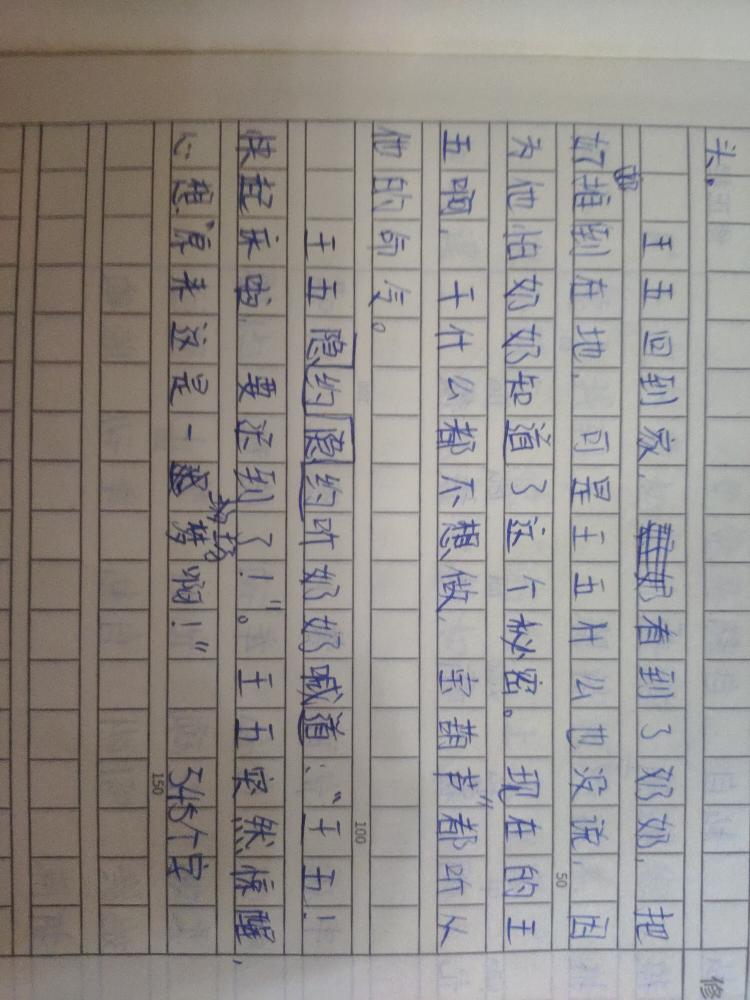 头。
王五回到家，奶看到了奶奶，把
奶推到在地，可是王五什么也没说，因
为他怕奶奶知道了这个秘密。现在的王
五啊，干什么都不想做，宝葫芦都听从
他的命令。
王五隐约隐约听奶奶喊道：“王五！
快起床啦，要迟到了！”。王五突然惊醒，
心想“原来这是一场梦啊！”
545个字
50
100
150
修